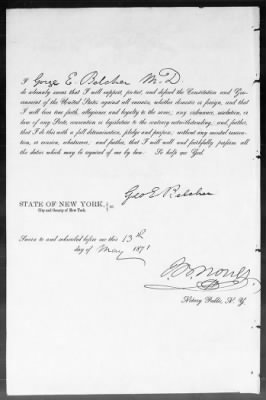 I George E. Belcher M.D
do solemnly swear that I will support, protect, and defend the Constitution and Gov-
ernment of the United States against all enemies, whether domestic or foreign, and that
I will bear true faith, allegiance and loyalty to the same, any ordinance, resolution, or
law of any State convention or legislature to the contrary notwithstanding, and, further,
that I do this with a full determination, pledge and purpose, without any mental reserva-
tion, or evasion, whatsoever, and further, that I will well and faithfully perform all
the duties which may be required of me by law. So help me God.
Geo E Belcher
STATE OF NEW YORK, ss.
City and County of New York.
Sworn to and subscribed before me this 13th
day of May 1871
Notary Public, N. Y.